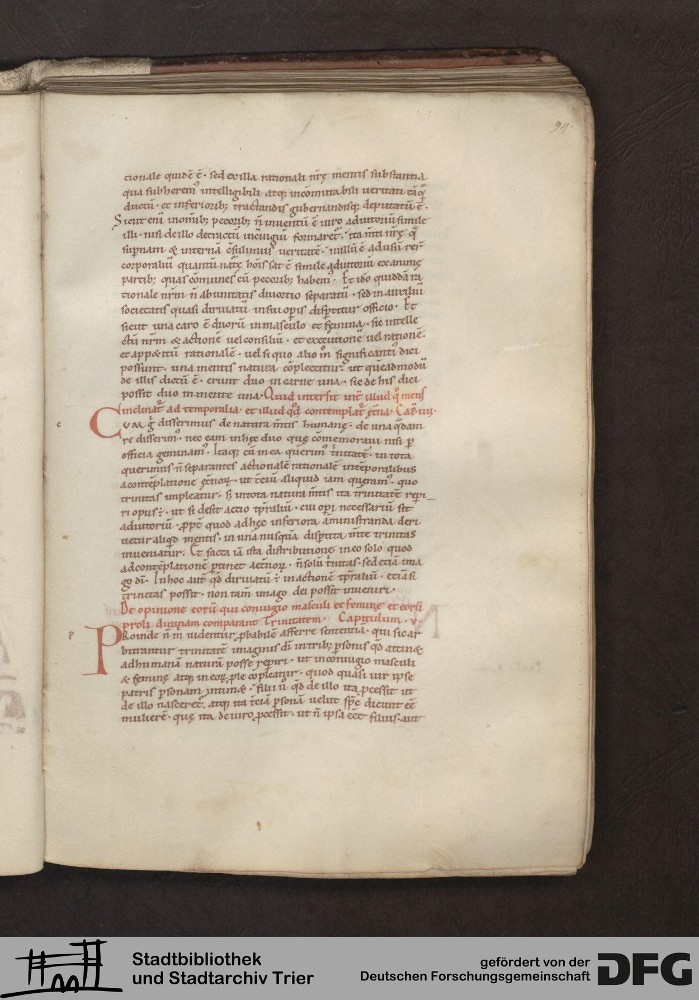 94.
cionale quidē ē · sed ex illa rationali nrę mentis substantia
qua subherem᷒ intelligibili atq; incōmutabili veritati tāq̄
ductū · et inferiorib; tractandis gubernandisq; deputatū ē ·
Sicut enī in omib; pecorib; n̄ inventū ē viro adiutoriū simile
illi · nisi de illo detractū in cuiugiū formaret᷒ · ita mti nrę q̄
supnam & internā cōsulimus veritatē · nullū ē ad usū reꝝ
corporaliū quantū natę hōis sat ē simile adiutoriū ex animę
partib; quas cōmunes cū pecorib; habem᷒ · Et ido quiddā ra
cionale nrm̄ n̄ ab unitatis divortio separatū · sed in auxiliū
societatis quasi dirivatū in sui opis disptitur officio · Et
sicut una caro ē duorū in masculo et femina · sic intelle
ctū nrm̄ & actionē vel consiliū · et executionē vel rationē ·
et appetitū rationalē · vel si quo alio m̊ significantius dici
possunt · una mentis natura cōplectitur · ut quēadmodū
de illis dictū ē · erunt duo in carne una · sic de his dici
possit duo in mente una · Quid intersit int̄ illud q̄ mens
inclinat᷒ ad temporalia · et illud qd̄ contemplat᷒ ęt̄na · Cap̄ iiij ·
c
CVM ḡ disserimus de natura m̄tis humanę · de una q̄dam
re disserim᷒ · nec eam in hęc duo quę cōmemoravi nisi p
officia geminam᷒ · Itaq; cū in ea querim᷒ t̓nitatē · in tota
querimus n̄ separantes actionalē rationalē in tēporalibus
a contēplatione ęt̄noꝝ · ut t̄ciū aliquid iam queram᷒ · quo
trinitas impleatur · S; in tota natura m̄tis ita trinitatē repi
ri opus ē · ut si desit actio tp̄raliū · cui opi necessariū sit
adiutoriū · ꝓpt̄ quod ad hęc inferiora aministranda deri
vetur aliqd mentis · in una nusquā disptita m̄te trinitas
inveniatur · Et facta iā ista distributione in eo solo quod
ad contēplationē ptinet aet̄noꝝ · n̄ solū t̓nitas · sed etiā ima
go dī · In hoc aut̄ qd̄ dirivatū ē in actionē tp̄raliū · etiā si
trinitas possit · non tam imago dei possit inveniri ·
De opinione eorū qui coniugio masculi et feminę et eorū
proli divinam comparant Trinitatem · Capitulum · v ·
p
PRoinde n̄ m̄ videntur ꝓbabilē afferre sententiā · qui sic ar
bitrantur trinitatē imaginis dī in trib; psonis qd̄ attinet
ad humanā naturā posse repiri · ut in coniugio masculi
& feminę atq; in eoꝝ ꝓle cōpleatur · quod quasi vir ipse
patris psonam intimet · filii v̄ qd̄ de illo ita ꝓcessit ut
de illo nasceret᷒ · atq; ita t̄ciā psonā velut sp̄c dicunt eē
mulierē · quę ita de viro ꝓcessit · ut n̄ ipsa eēt filius · aut
Stadtbibliothek
und Stadtarchiv Trier
gefördert von der
Deutschen Forschungsgemeinschaft
DFG